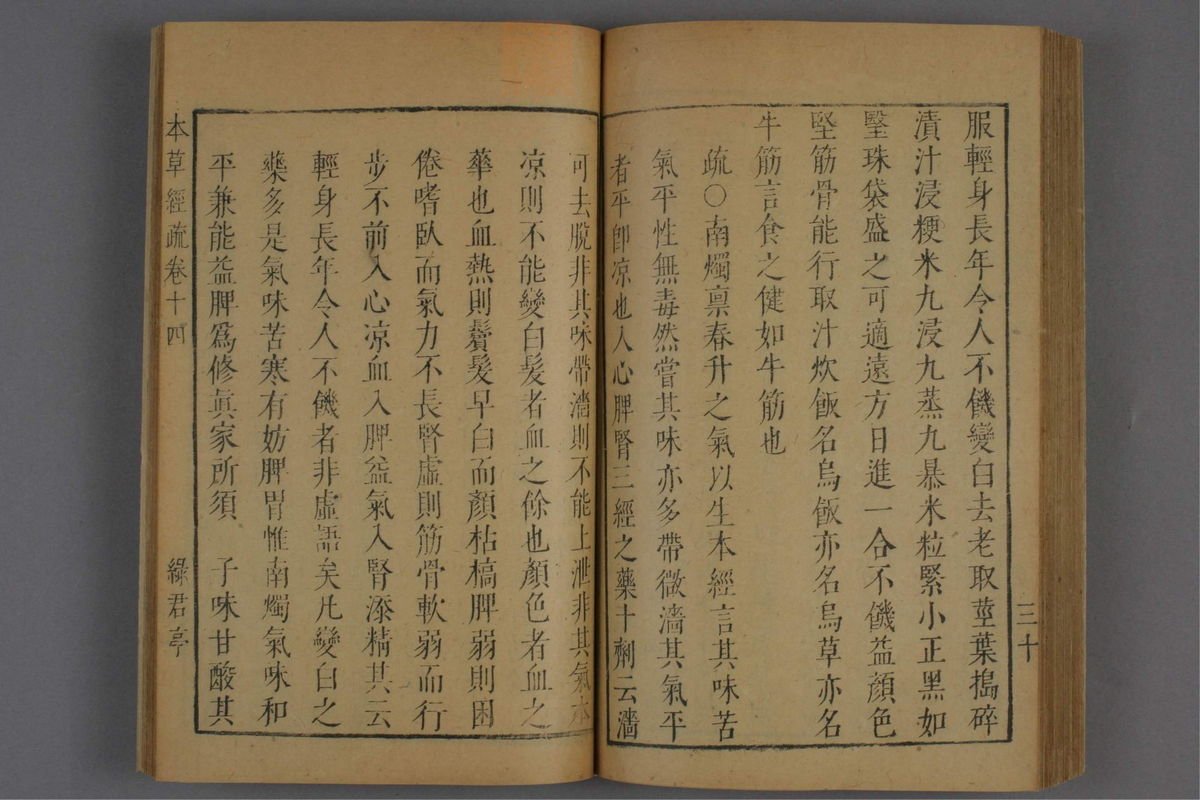 三十
服輕身長年令人不饑變白去老取莖葉搗碎
漬汁浸粳米九浸九蒸九暴米粒緊小正黑如
瑿珠袋盛之可適遠方日進一合不饑益顏色
堅筋骨能行取汁炊飯名烏飯亦名烏草亦名
牛筋言食之健如牛筋也
疏○南燭禀春升之氣以生本經言其味苦
氣平性無毒然嘗其味亦多帶微濇其氣平
者平卽凉也入心脾腎三經之藥十劑云濇
可去脫非其味帶濇則不能上泄非其氣本
凉則不能變白髮者血之餘也顏色者血之
華也血熱則鬢髮早白而顏枯槁脾弱則困
倦嗜臥而氣力不長腎虛則筋骨軟弱而行
步不前入心凉血入脾益氣入腎添精其云
輕身長年令人不饑者非虛語矣凡變白之
藥多是氣味苦寒有妨脾胃惟南燭氣味和
平兼能益脾爲修眞家所須 子味甘酸其
本草經疏卷十四 綠君亭